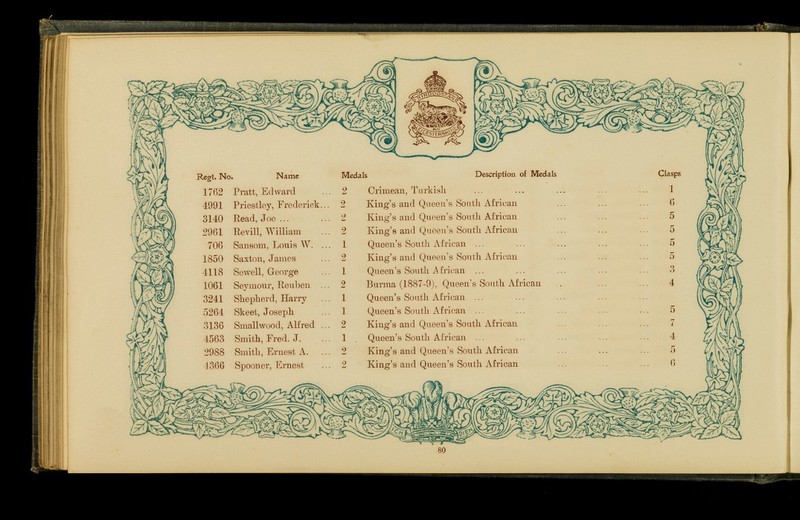 HINDOOSTAN
LEICESTERSHIRE
Regt. No. Name Medals Description of Medals Clasps
1762 Pratt, Edward ... 2 Crimean, Turkish ... ... ... ... ... 1
4991 Priestley, Frederick... 2 King's and Queen's South African ... ... ... 6
3140 Read, Joe ... ... 2 King's and Queen's South African ... ... ... 5
2961 Revill, William ... 2 King's and Queen's South African ... ... ... 5
706 Sansom, Louis W. ... 1 Queen's South African ... ... ... ... ... 5
1850 Saxton, James ... 2 King's and Queen's South African ... ... ... 5
4118 Sewell, George ... 1 Queen's South African ... ... ... ... ... 3
1061 Seymour, Reuben ... 2 Burma (1887-9), Queen's South African . ... ... 4
3241 Shepherd, Harry ... 1 Queen's South African ... ... ... ... ...
5264 Skeet, Joseph ... 1 Queen's South African ... ... ... ... ... 5
3136 Smallwood, Alfred ... 2 King's and Queen's South African ... ... ... 7
4563 Smith, Fred. J. ... 1 Queen's South African ... ... ... ... ... 4
2988 Smith, Ernest A. ... 2 King's and Queen's South African ... ... ... 5
4366 Spooner, Ernest ... 2 King's and Queen's South African ... ... ... 6
80